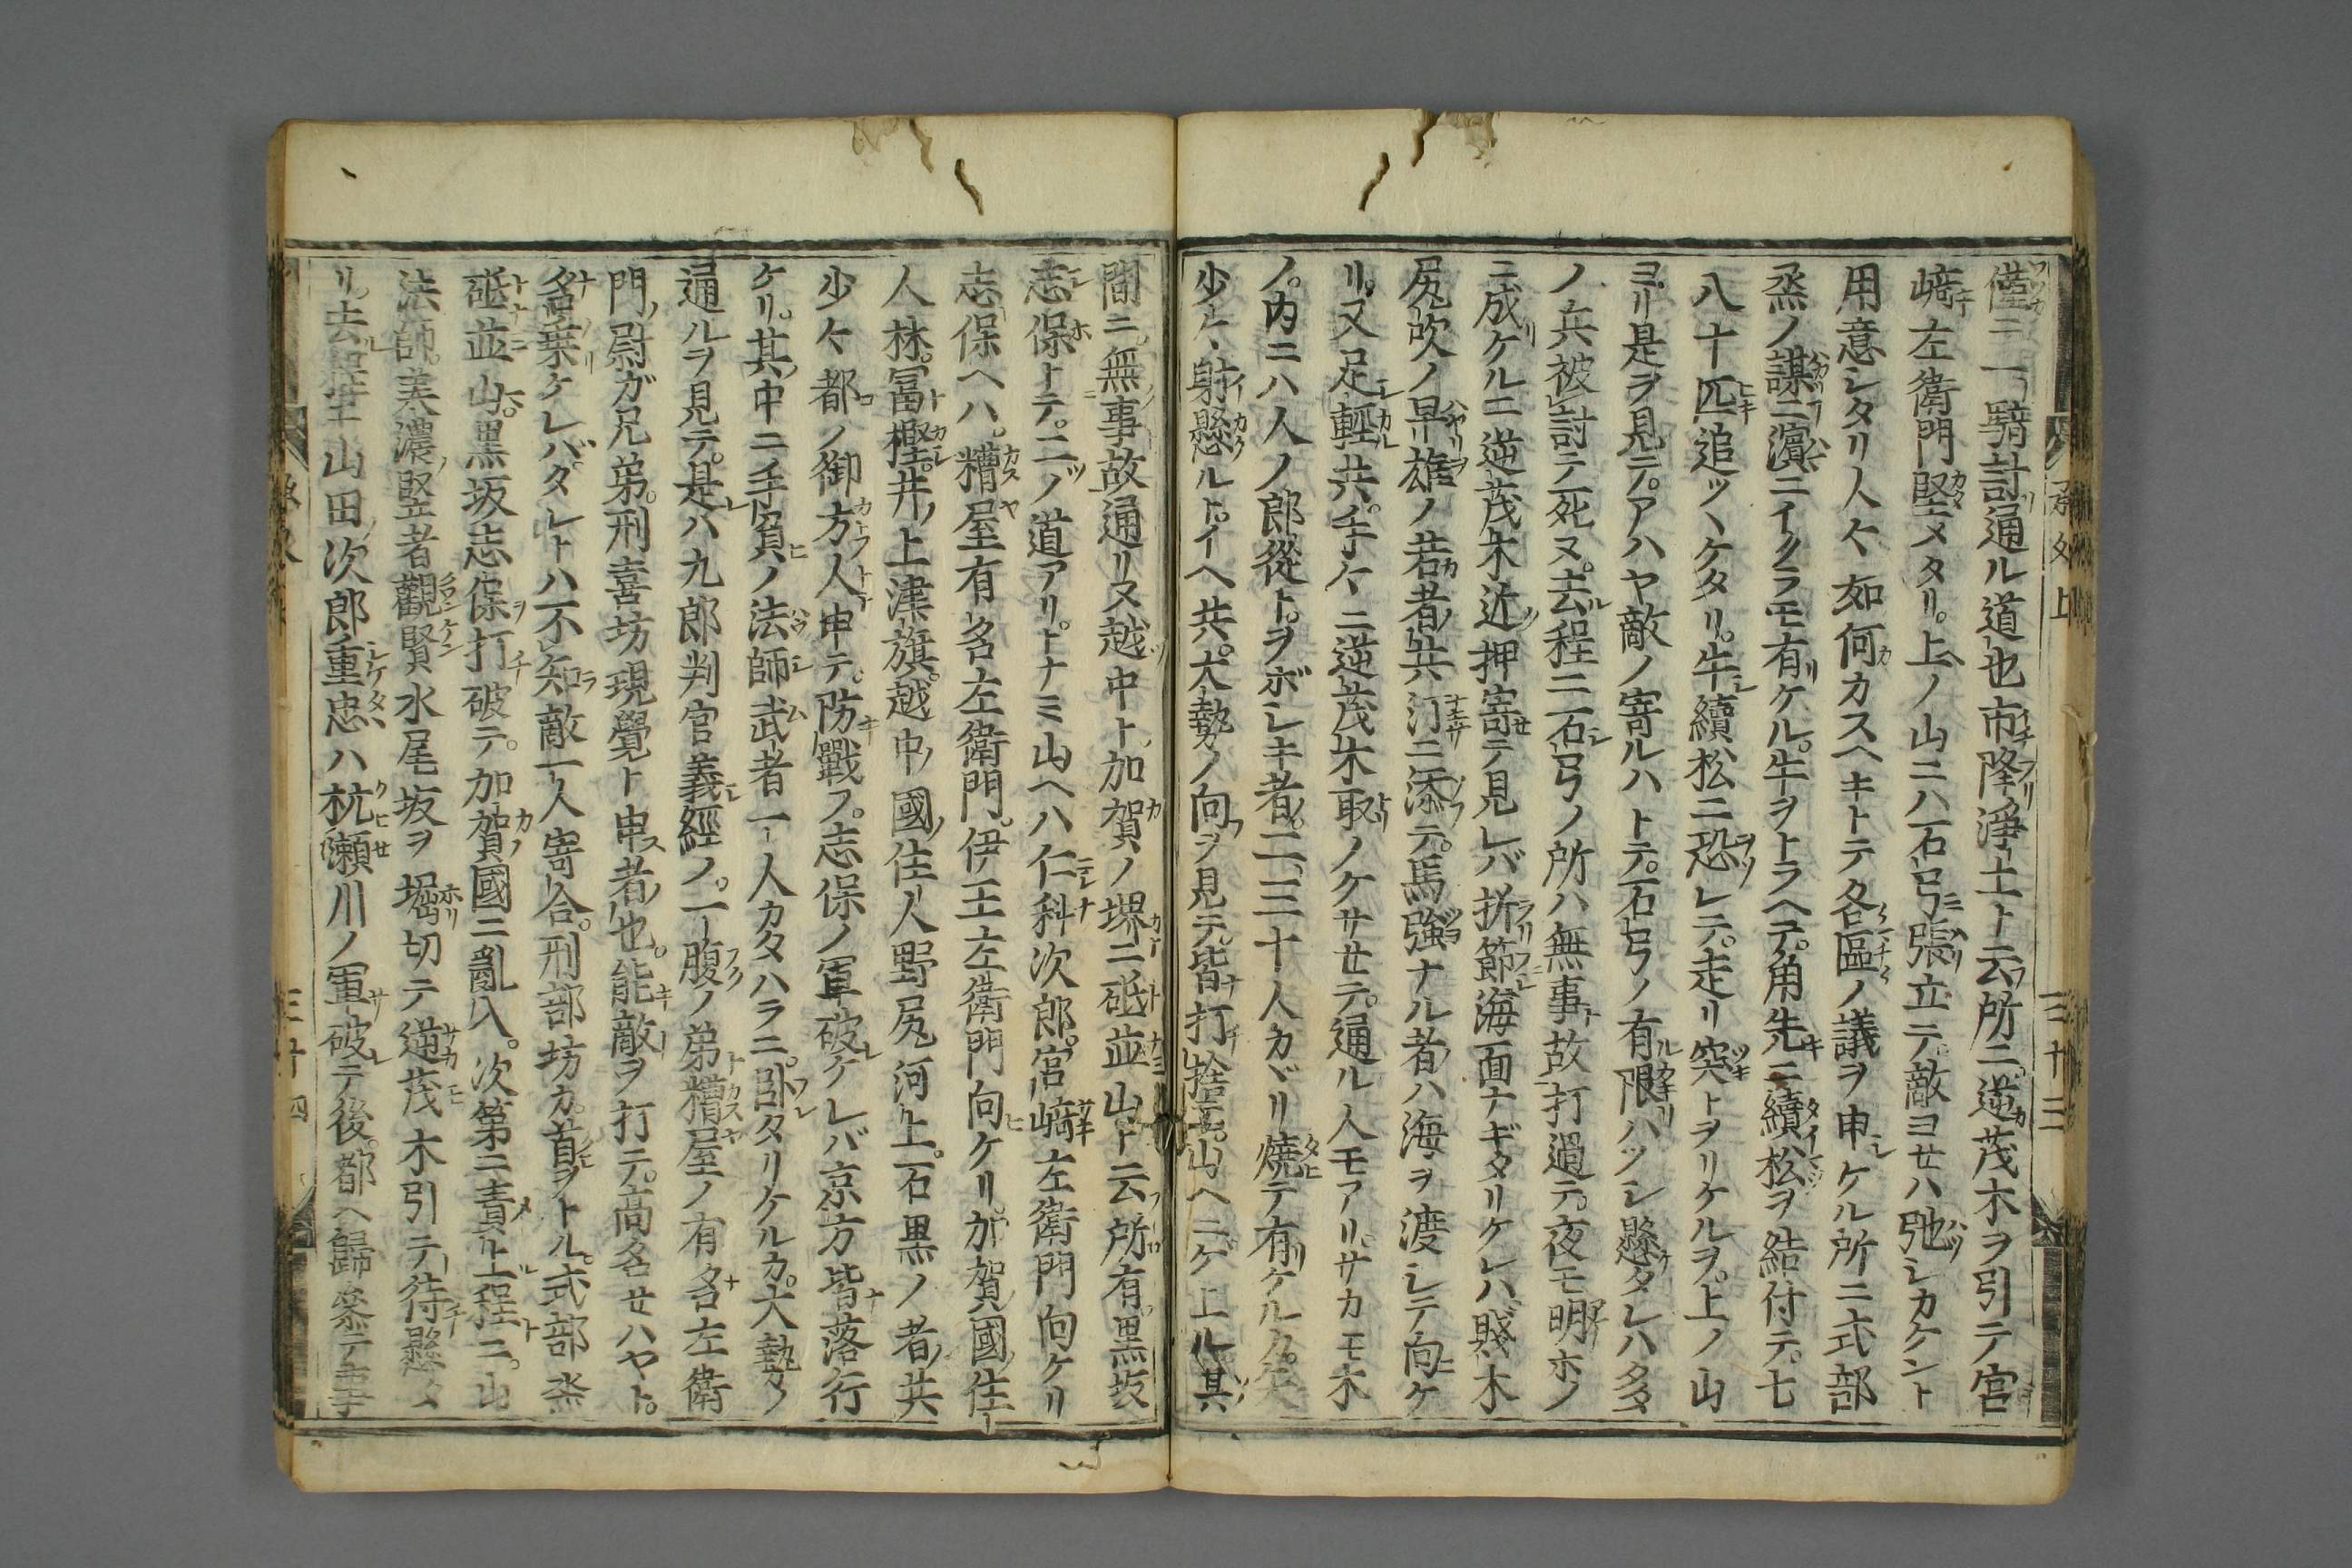 僅ニ一騎討通ル道也市降淨土ト云所ニ逆茂木ヲ引テ宮
﨑左衛門堅メタリ。上ノ山ニハ石弓張立テ敵ヨセハ弛シカケント
用意シタリ人々如何カスヘキトテ各區ノ議ヲ申ケル所ニ式部
烝ノ謀ニ濵ニイクラモ有ケル。牛ヲトラヘテ。角先ニ續松ヲ結付テ。七
八十匹追ツヽケタリ。牛續松ニ恐レテ。走リ突トヲリケルヲ。上ノ山
ヨリ是ヲ見テ。アハヤ敵ノ寄ルハトテ。石弓ノ有限ハツシ懸タレハ多
ノ兵被討テ死ヌ。去程ニ石弓ノ所ハ無事故打過テ。夜モ明ホノ
ニ成ケルニ逆茂木近押寄テ見レバ折節海面ナギタリケレハ賤木
尻吹ノ早雄ノ若者共汀ニ添テ。馬強ナル者ハ海ヲ渡シテ向ケ
リ。又足輕共。手々ニ逆茂木取ノケサセテ。通ル人モアリ。サカモ木
ノ。内ニハ人ノ郎從ト。ヲボシキ者。二三十人カヾリ焼テ有ケルカ。矢
少々射懸ルト。イヘ共。大勢ノ向ヲ見テ。皆打捨テ。山ヘニゲ上ル其
間ニ。無事故通リヌ越中ト。加賀ノ堺ニ砥並山ト云所有黒坂
志保トテ。二ノ道アリ。トナミ山ヘハ仁科次郎。宮﨑左衛門向ケリ
志保ヘハ。糟屋有名左衛門。伊王左衛門向ケリ。加賀國住
人林。冨樫。井上津旗。越中國住人野尻河上。石黒ノ者共
少々都ノ御方人申テ。防戰フ。志保ノ軍破ケレバ京方皆落行
ケリ。其中ニ手負ノ法師武者一人カタハラニ。臥タリケルカ。大勢ノ
通ルヲ見テ。是ハ九郎判官義經ノ。一腹ノ弟糟屋ノ有名左衛
門尉ガ兄弟。刑喜坊現覺ト申者也。能敵ヲ打テ。高名セハヤト。
名乗ケレバ。タレトハ不知敵一人寄合。刑部坊カ。首ヲトル。式部烝
砥並山。黒坂志保打破テ。加賀國ニ亂入。次第ニ責上程ニ。山
法師。美濃竪者觀賢水尾坂ヲ堀切テ逆茂木引テ待懸タ
リ。去程ニ山田次郎重忠ハ杭瀬川ノ軍破テ後。都ヘ歸参テ事
承久上
三十三
三十四